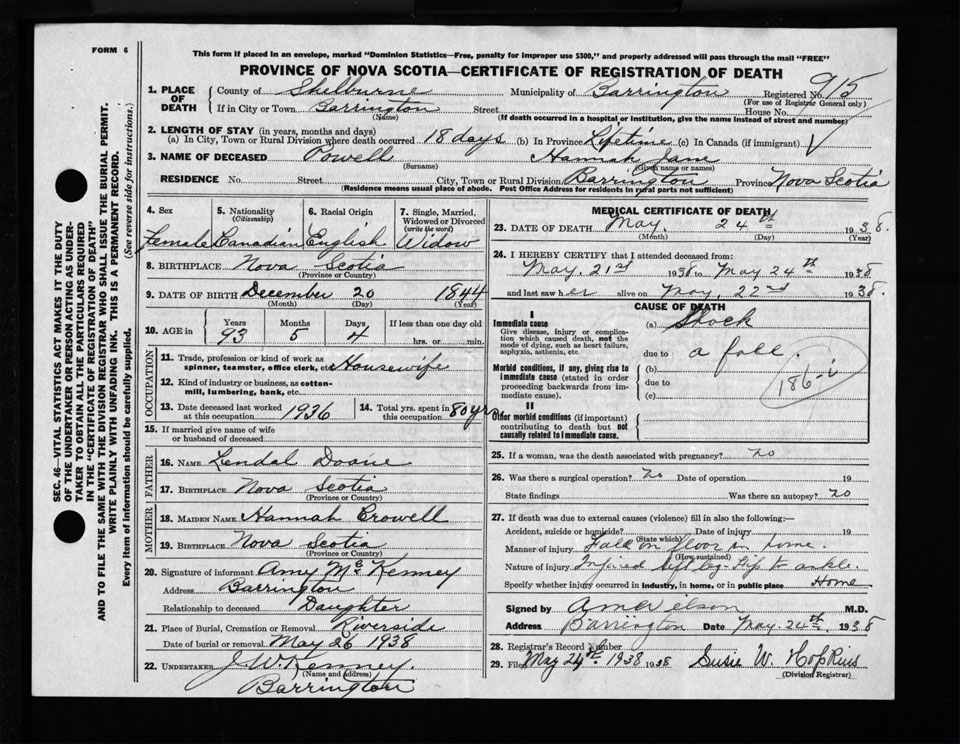 FORM 6
This form if placed in an envelope, marked "Dominion Statistics—Free, penalty for improper use $300," and properly addressed will pass through the mail "FREE"
PROVINCE OF NOVA SCOTIA—CERTIFICATE OF REGISTRATION OF DEATH
SEC. 46—VITAL STATISTICS ACT MAKES IT THE DUTY
OF THE UNDERTAKER OR PERSON ACTING AS UNDER-
TAKER TO OBTAIN ALL THE PARTICULARS REQUIRED
IN THE "CERTIFICATE OF REGISTRATION OF DEATH"
AND TO FILE THE SAME WITH THE DIVISION REGISTRAR WHO SHALL ISSUE THE BURIAL PERMIT.
WRITE PLAINLY WITH UNFADING INK. THIS IS A PERMANENT RECORD.
Every item of information should be carefully supplied. (See reverse side for instructions.)
1. PLACE OF DEATH County of Shelburne Municipality of Barrington Registered No. 915
(For use of Registrar General only)
If in City or Town Barrington Street House No.
(Name) (If death occurred in a hospital or institution, give the name instead of street and number)
2. LENGTH OF STAY (in years, months and days)
(a) In City, Town or Rural Division where death occurred 18 days (b) In Province Lifetime (c) In Canada (if immigrant)
3. NAME OF DECEASED Powell Hannah Jane
(Surname) (Given name or names)
RESIDENCE No. Street City, Town or Rural Division Barrington Province Nova Scotia
(Residence means usual place of abode. Post Office Address for residents in rural parts not sufficient)
4. Sex 5. Nationality (Citizenship) 6. Racial Origin 7. Single, Married, Widowed or Divorced (write the word)
Female Canadian English Widow
8. BIRTHPLACE Nova Scotia
(Province or Country)
9. DATE OF BIRTH December 20 1844
(Month) (Day) (Year)
10. AGE in Years Months Days If less than one day old
93 5 4 hrs. or min.
OCCUPATION
11. Trade, profession or kind of work as
spinner, teamster, office clerk, etc. Housewife
12. Kind of industry or business, as cotton-
mill, lumbering, bank, etc.
13. Date deceased last worked at this occupation 1936 14. Total yrs. spent in this occupation 80 yrs.
15. If married give name of wife
or husband of deceased
FATHER
16. NAME Lendal Doane
17. BIRTHPLACE Nova Scotia
(Province or Country)
MOTHER
18. MAIDEN NAME Hannah Crowell
19. BIRTHPLACE Nova Scotia
(Province or Country)
20. Signature of informant Amy McKenney
Address Barrington
Relationship to deceased Daughter
21. Place of Burial, Cremation or Removal Riverside
Date of burial or removal May 26 1938
22. UNDERTAKER J. W. Kenney.
(Name and address)
Barrington
MEDICAL CERTIFICATE OF DEATH
23. DATE OF DEATH May. 24th 1938.
(Month) (Day) (Year)
24. I HEREBY CERTIFY that I attended deceased from:
May. 21st 1938 to May 24th 1938
and last saw her alive on May. 22nd 1938.
CAUSE OF DEATH
I
Immediate cause (a) Shock
Give disease, injury or complica-
tion which caused death, not the
mode of dying, such as heart failure,
asphyxia, asthenia, etc. due to a fall.
Morbid conditions, if any, giving rise to (b)
immediate cause (stated in order due to 186-i
proceeding backwards from im-
mediate cause). (c)
II
Other morbid conditions (if important)
contributing to death but not
causally related to immediate cause.
25. If a woman, was the death associated with pregnancy? no
26. Was there a surgical operation? no Date of operation 19
State findings Was there an autopsy? no
27. If death was due to external causes (violence) fill in also the following:—
Accident, suicide or homicide? Date of injury 19
(State which)
Manner of injury Fall on floor in home.
(How sustained)
Nature of injury Injured left leg—hip to ankle.
Specify whether injury occurred in industry, in home, or in public place Home
Signed by M.D.
Address Barrington Date May. 24th 1938
28. Registrar's Record Number
29. Filed May 24th 1938 1938 Susie W. Hopkins
(Division Registrar)